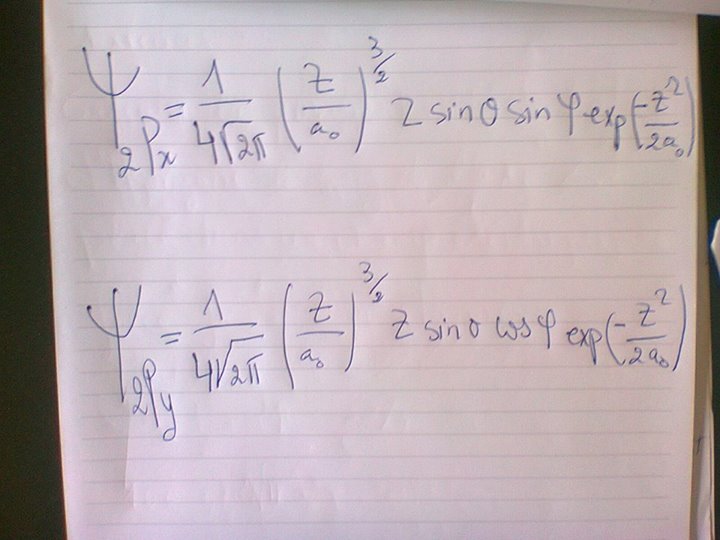 Ψ_{2Px} = \frac{1}{4\sqrt{2π}} \left(\frac{Z}{a_0}\right)^{3/2} Z sin θ sin φ exp\left(-\frac{Z^2}{2a_0}\right)
Ψ_{2Py} = \frac{1}{4\sqrt{2π}} \left(\frac{Z}{a_0}\right)^{3/2} Z sin θ cos φ exp\left(-\frac{Z^2}{2a_0}\right)